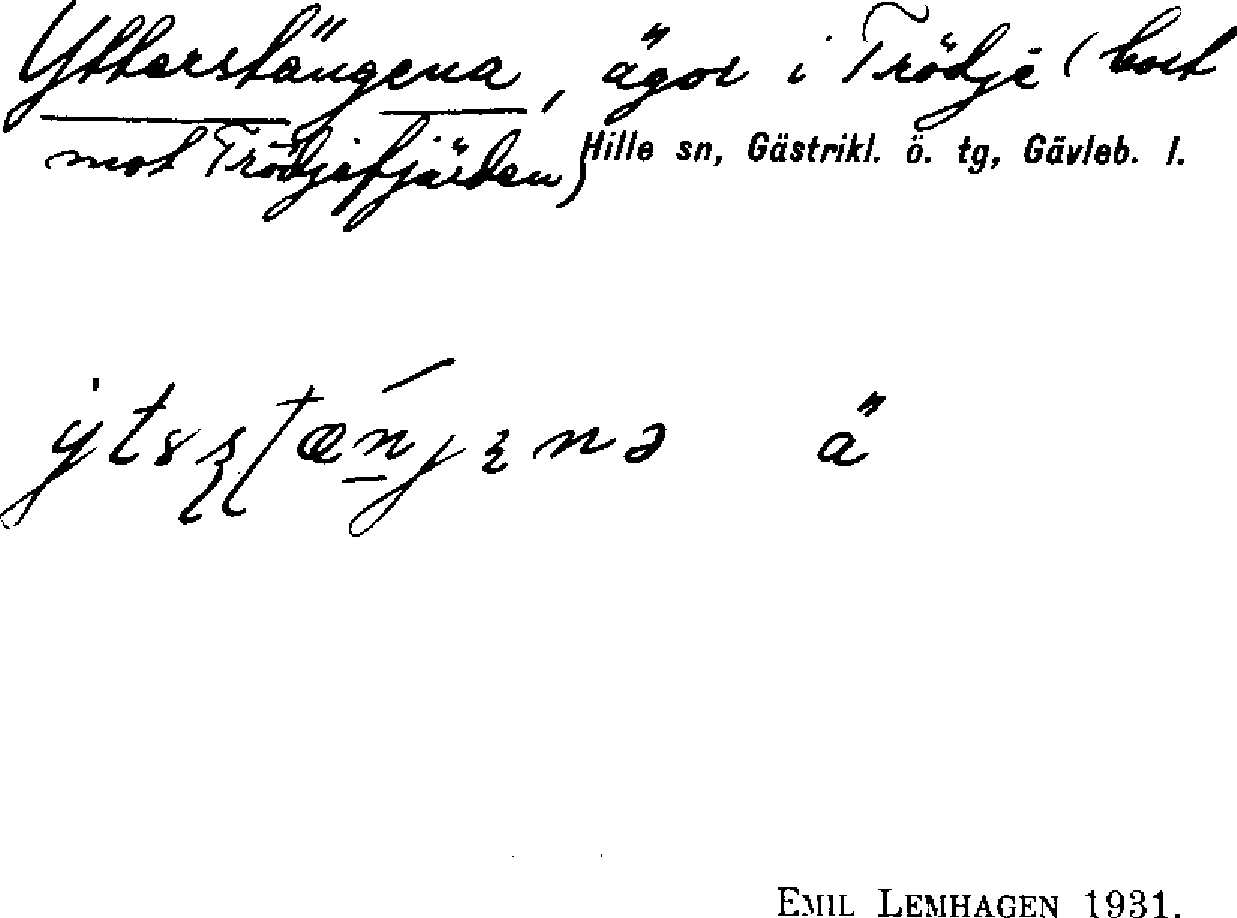 Ytterstängena, ägor i Trödje (bort
mot Trödjefjärden)
Hille sn, Gästrikl. ö. tg, Gävleb. l.
ä
EMIL LEMHAGEN 1931.